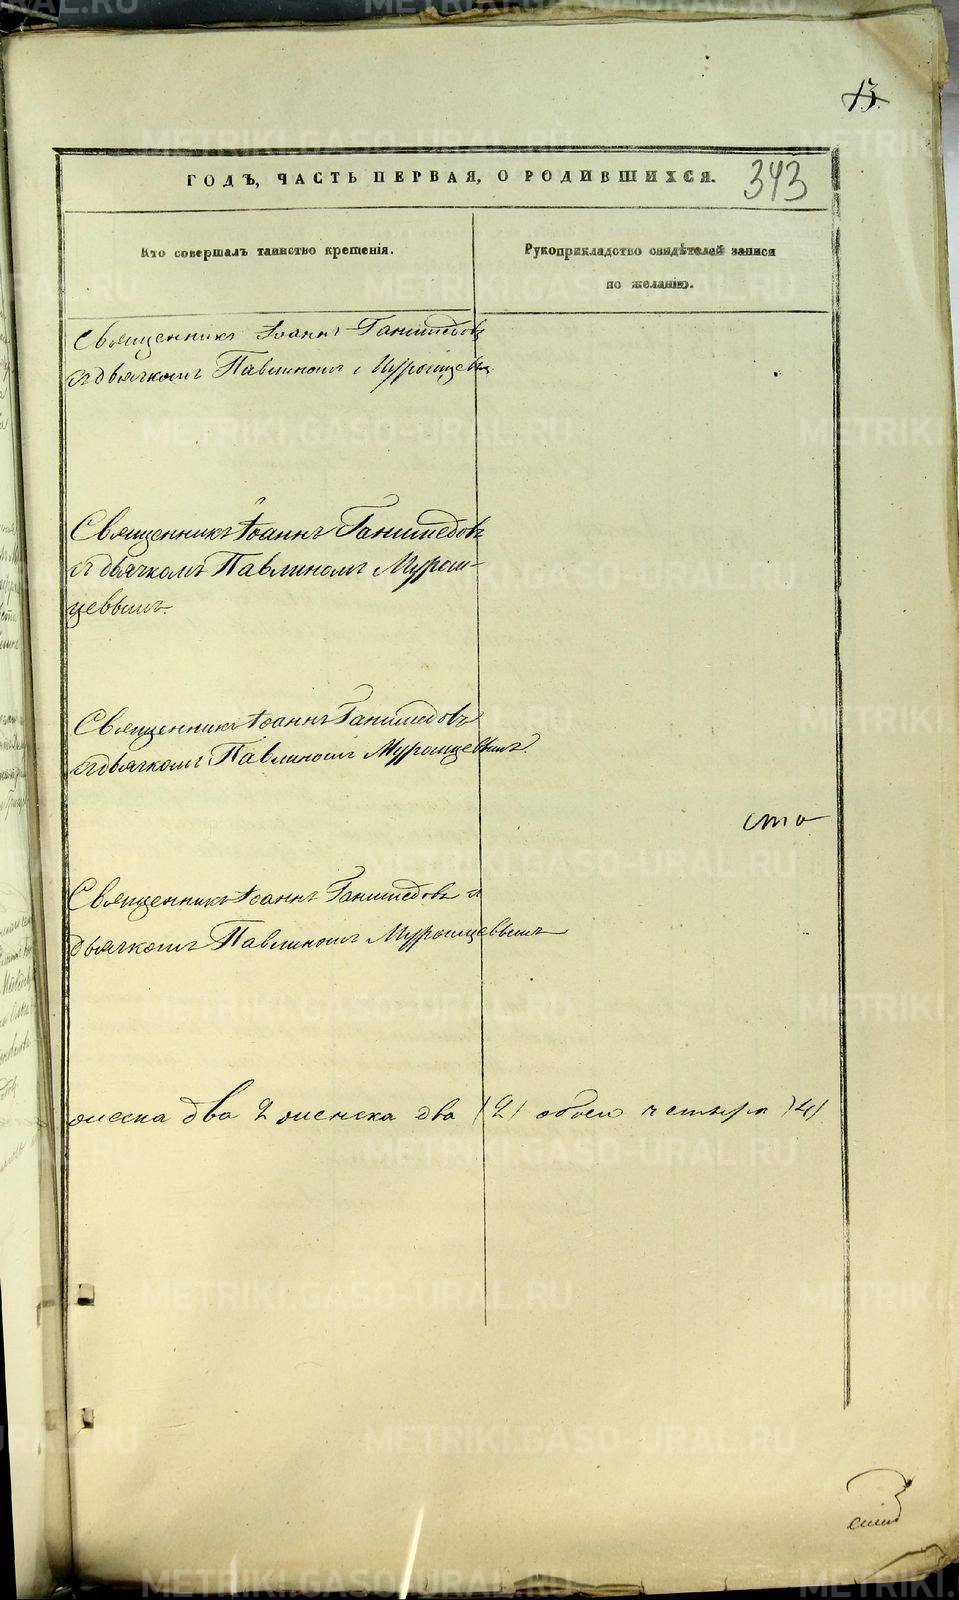 13.
343
ГОДЪ, ЧАСТЬ ПЕРВАЯ, О РОДИВШИХСЯ.
Кто совершалъ таинство крещенія.
Рукоприкладство свидѣтелей записи
по желанію.
Священникъ Іоаннъ Ганимедовъ
съ дьячкомъ Павлиномъ Муромцевы
Священникъ Іоаннъ Ганимедовъ
съ дьячкомъ Павлиномъ Муром-
цевымъ.
Священникъ Іоаннъ Ганимедовъ
съ дьячкомъ Павлиномъ Муромцевымъ.
сто
Священникъ Іоаннъ Ганимедовъ съ
дьячкомъ Павлиномъ Муромцевымъ
два 2 женска два (2) обоего четыре (4)
METRIKI.GASO-URAL.RU